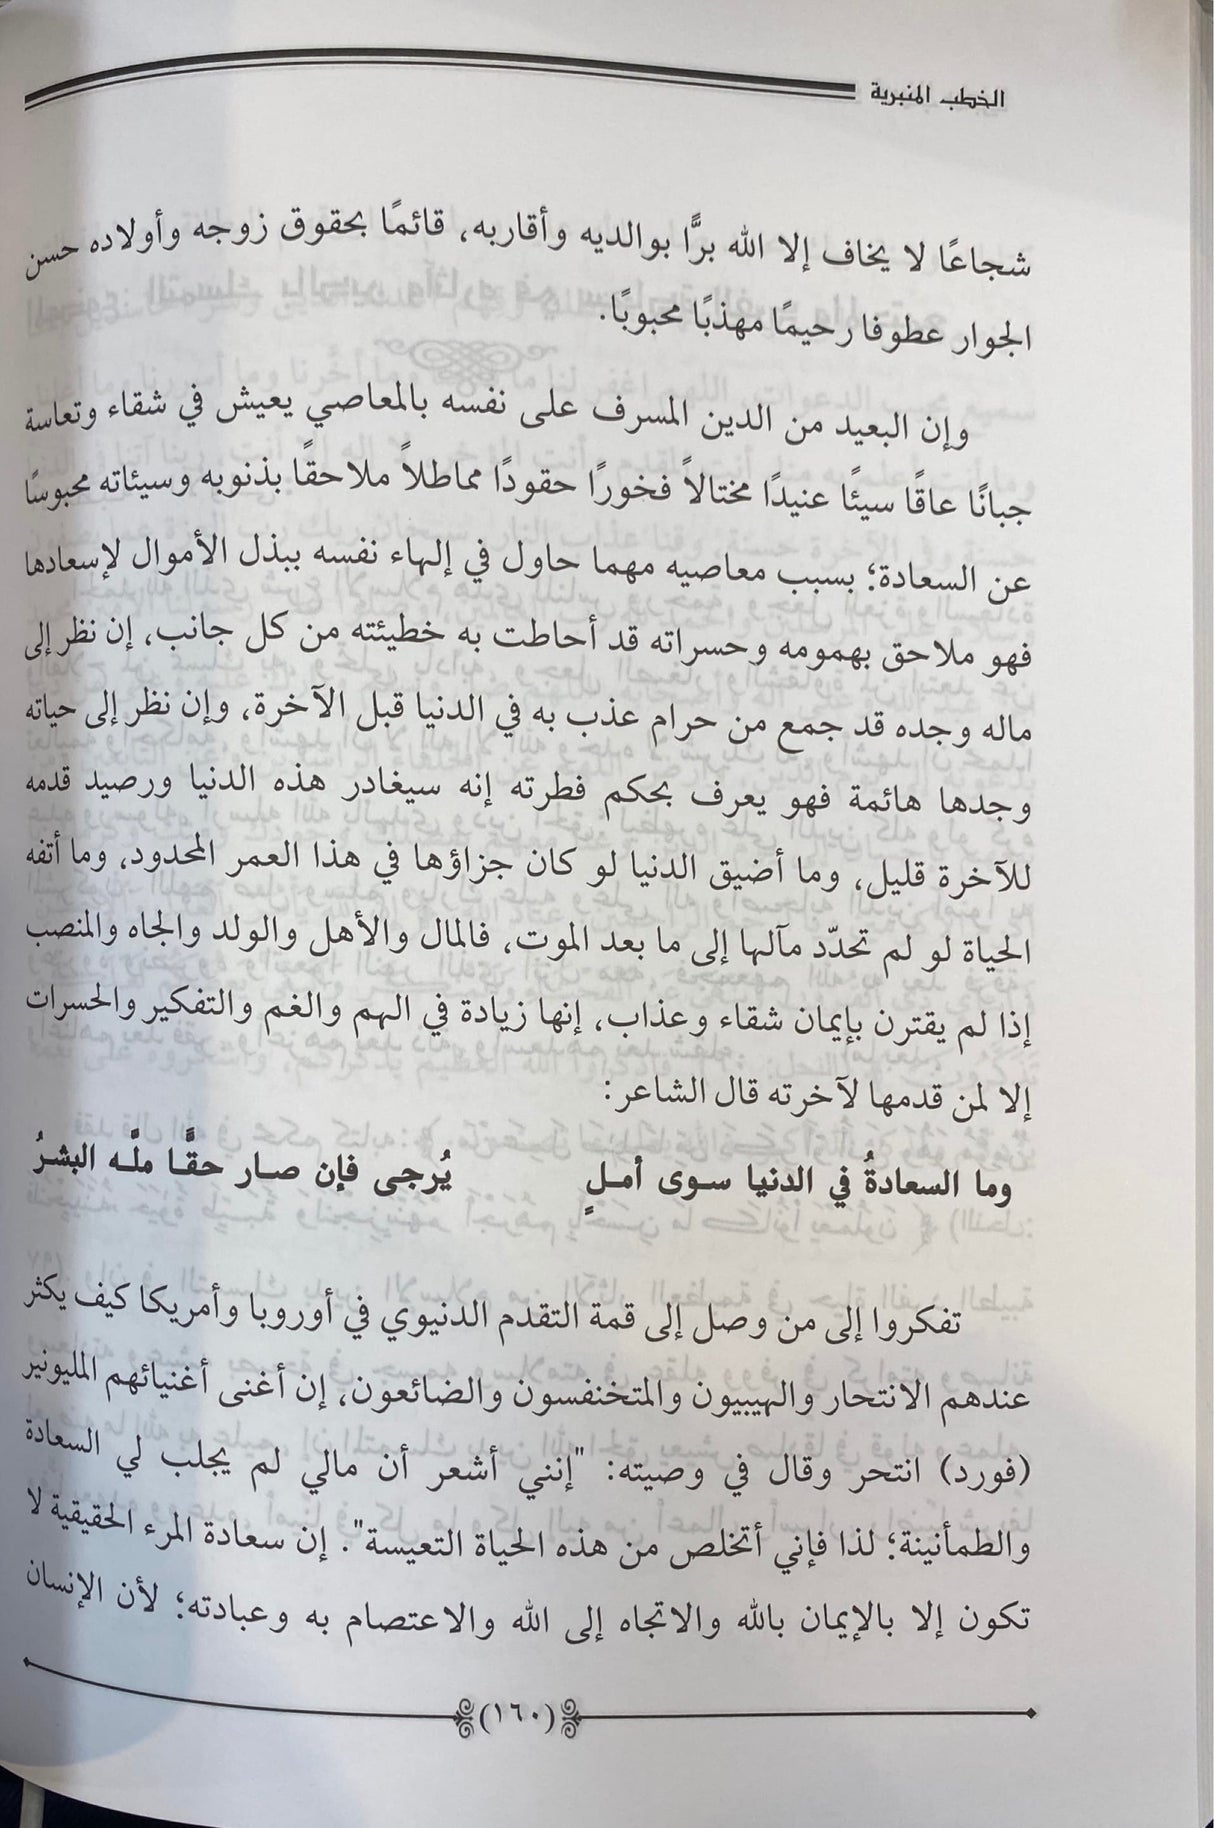 الخطب المنبرية
شجاعًا لا يخاف إلا الله برًّا بوالديه وأقاربه، قائمًا بحقوق زوجه وأولاده حسن
الجوار عطوفا رحيمًا مهذبًا محبوبًا.
وإن البعيد من الدين المسرف على نفسه بالمعاصي يعيش في شقاء وتعاسة
جبانًا عاقًا سيئًا عنيدًا مختالاً فخورًا حقودًا مماطلاً ملاحقًا بذنوبه وسيئاته محبوسًا
عن السعادة؛ بسبب معاصيه مهما حاول في إلهاء نفسه ببذل الأموال لإسعادها
فهو ملاحق بهمومه وحسراته قد أحاطت به خطيئته من كل جانب، إن نظر إلى
ماله وجده قد جمع من حرام عذب به في الدنيا قبل الآخرة، وإن نظر إلى حياته
وجدها هائمة فهو يعرف بحكم فطرته إنه سيغادر هذه الدنيا ورصيد قدمه
للآخرة قليل، وما أضيق الدنيا لو كان جزاؤها في هذا العمر المحدود، وما أتفه
الحياة لو لم تحدّد مآلها إلى ما بعد الموت، فالمال والأهل والولد والجاه والمنصب
إذا لم يقترن بإيمان شقاء وعذاب، إنها زيادة في الهم والغم والتفكير والحسرات
إلا لمن قدمها لآخرته قال الشاعر:
وما السعادةُ في الدنيا سوى أملٍ يُرجى فإن صار حقًّا ملَّه البشرُ
تفكروا إلى من وصل إلى قمة التقدم الدنيوي في أوروبا وأمريكا كيف يكثر
عندهم الانتحار والهيبيون والمتخنفسون والضائعون، إن أغنى أغنيائهم المليونير
(فورد) انتحر وقال في وصيته: "إنني أشعر أن مالي لم يجلب لي السعادة
والطمأنينة؛ لذا فإني أتخلص من هذه الحياة التعيسة". إن سعادة المرء الحقيقية لا
تكون إلا بالإيمان بالله والاتجاه إلى الله والاعتصام به وعبادته؛ لأن الإنسان
(١٦٠)